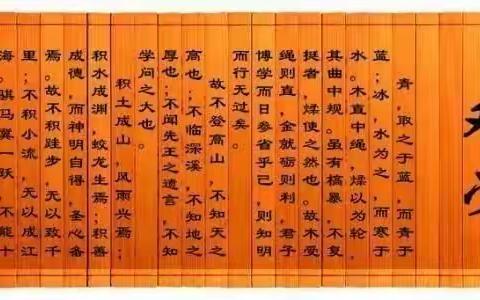 青，取之于蓝，而青于
蓝；冰，水为之，而寒于
水。木直中绳，煣以为轮，
其曲中规。虽有槁暴，不复
挺者，煣使之然也。故木受
绳则直，金就砺则利，君子
博学而日参省乎己，则知明
而行无过矣。
故不登高山，不知天之
高也；不临深溪，不知地之
厚也；不闻先王之遗言，不知
学问之大也。
积土成山，风雨兴焉；
积水成渊，蛟龙生焉；积善
成德，而神明自得，圣心备
焉。故不积跬步，无以致千
里；不积小流，无以成江
海。骐马冀一跃，不能十